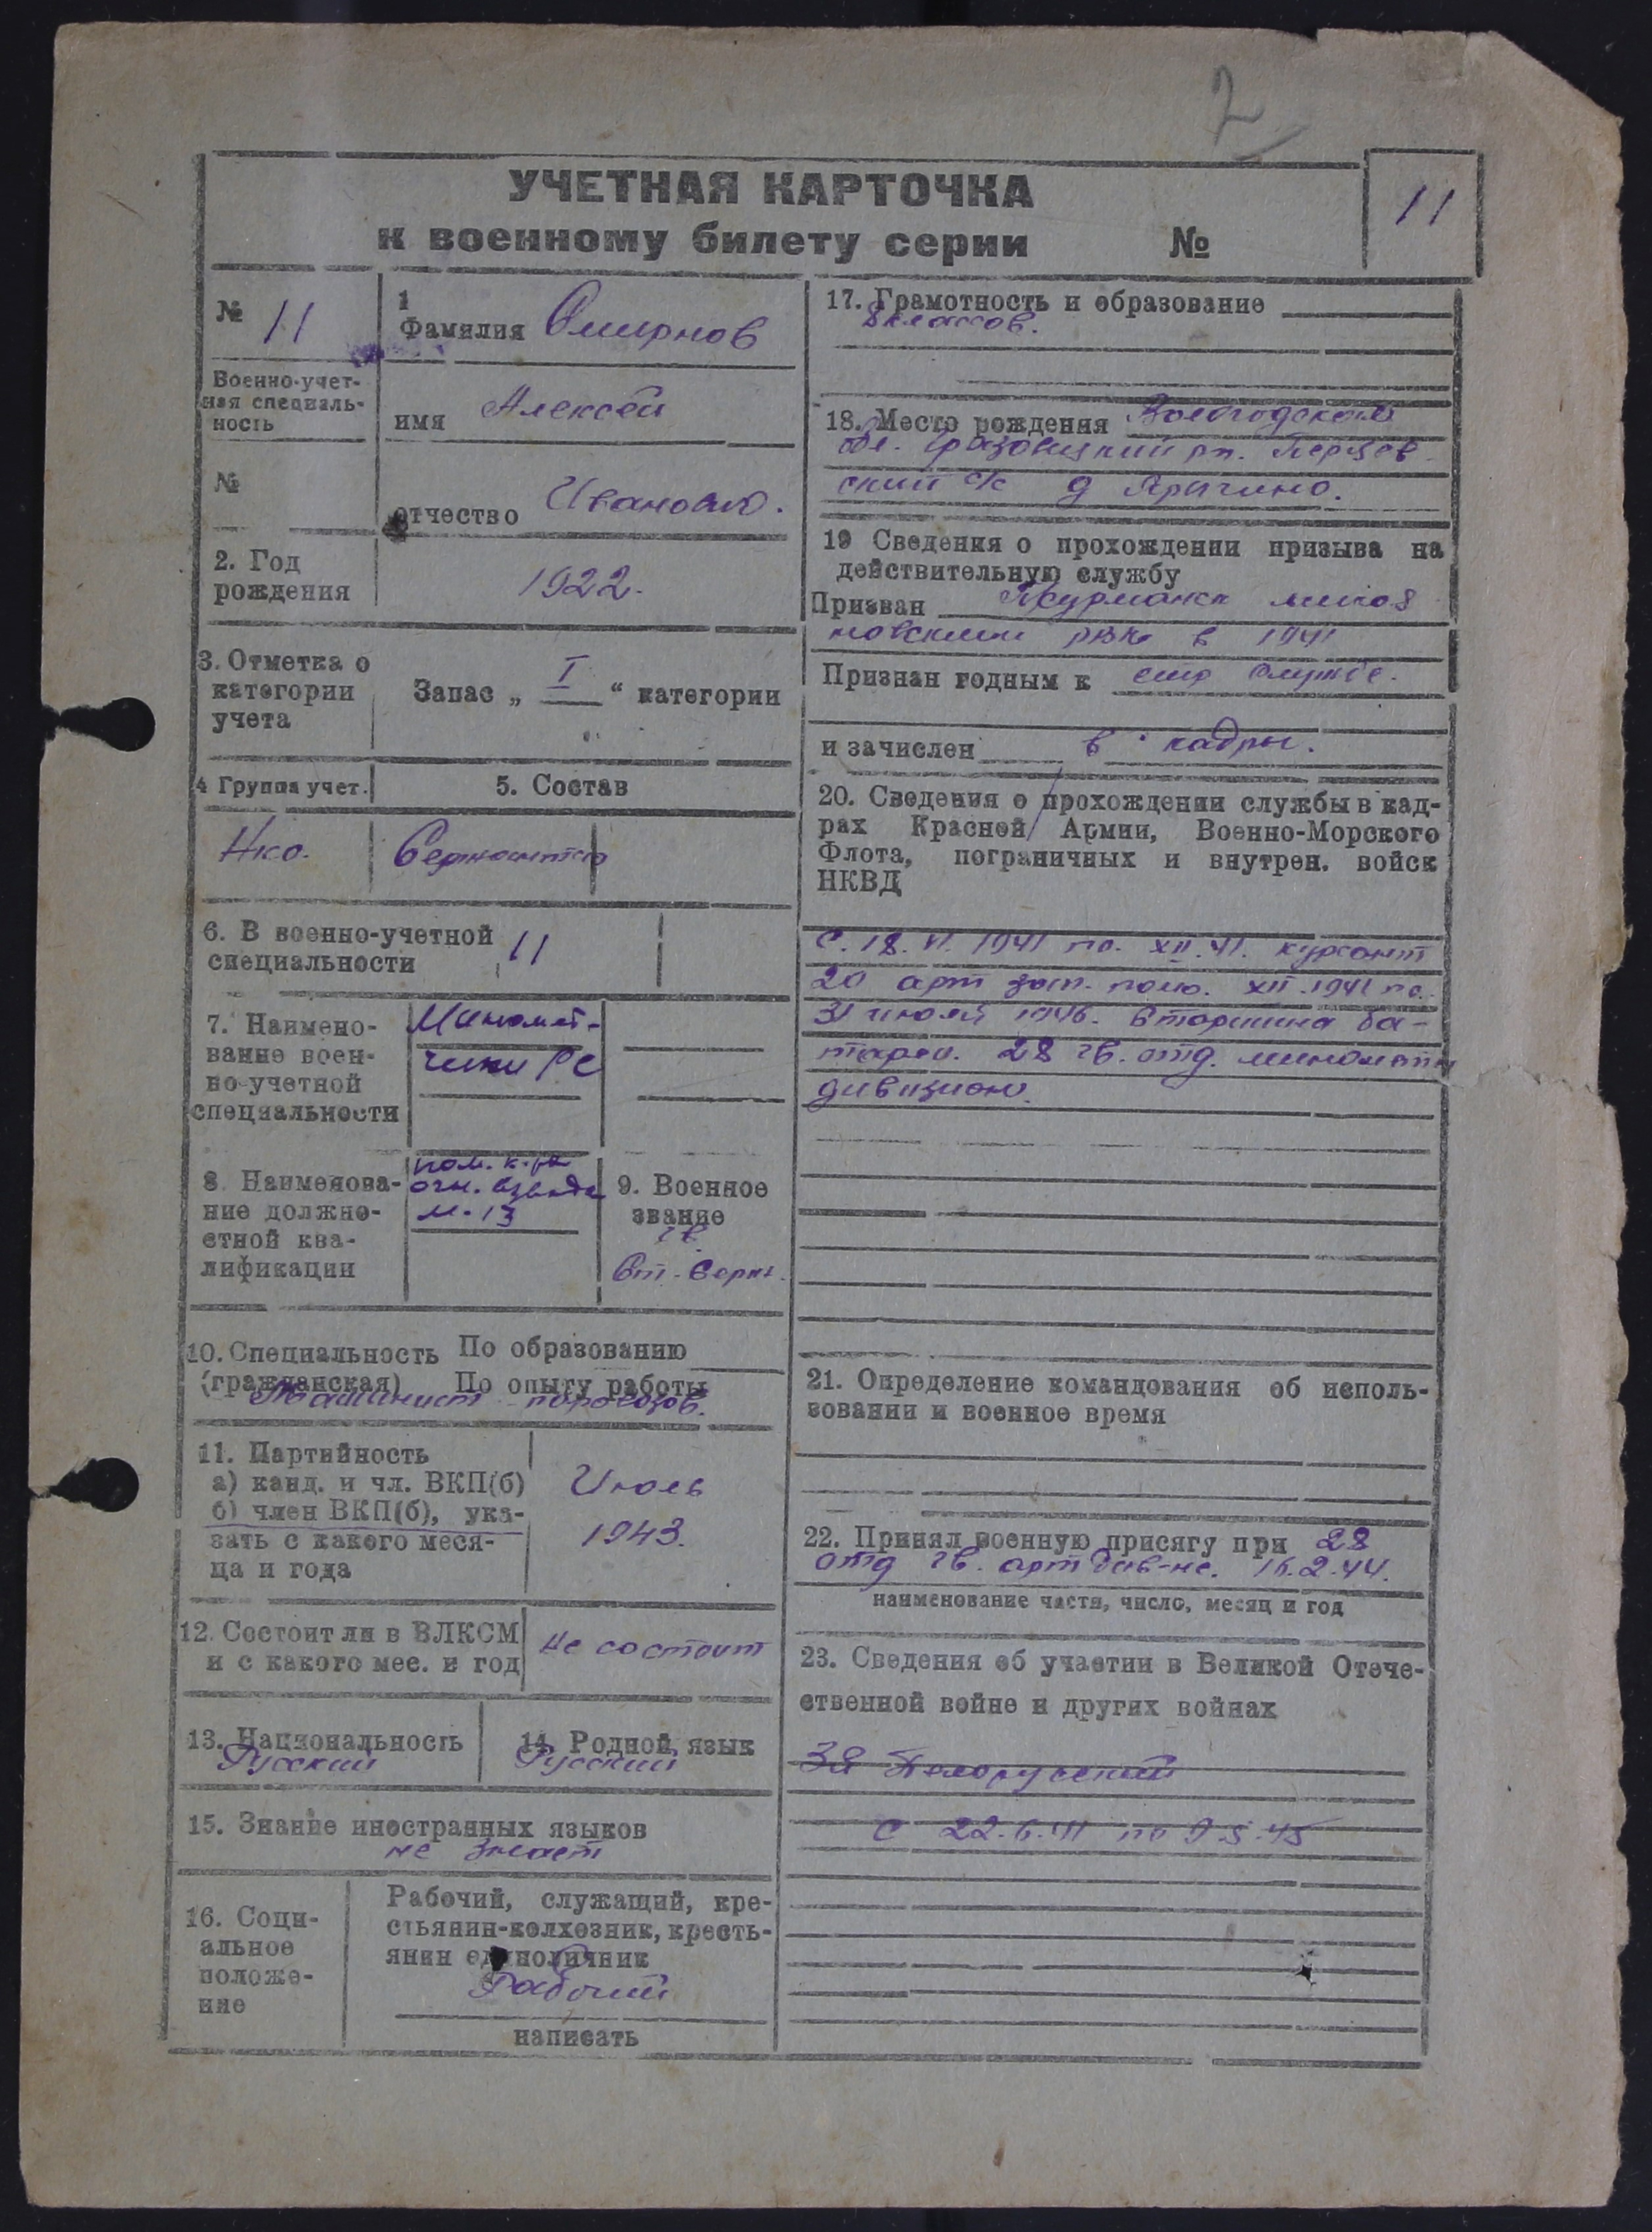 2
УЧЕТНАЯ КАРТОЧКА
к военному билету серии №
11
№ 11
1
Фамилия Смирнов
Военно-учет-
ная специаль-
ность
имя Алексей
№
отчество Иванович.
2. Год
рождения
1922.
3. Отметка о
категории
учета
Запас „ I “ категории
4 Группа учет.
5. Состав
Нко.
Сержантск
6. В военно-учетной
специальности
11
7. Наимено-
вание воен-
но-учетной
специальности
Миномет-
чики РС
8. Наименова-
ние должно-
стной ква-
лификации
пом. к-ра
огн. взвода
М-13
9. Военное
звание
гв.
Ст. Серж.
10. Специальность По образованию
(гражданская) По опыту работы
Машинист паровозов.
11. Партийность
а) канд. и чл. ВКП(б)
б) член ВКП(б), ука-
зать с какого меся-
ца и года
Июль
1943.
12. Состоит ли в ВЛКСМ
и с какого мес. и год
не состоит
13. Национальность
Русский
14. Родной язык
Русский
15. Знание иностранных языков
не знает
16. Соци-
альное
положе-
ние
Рабочий, служащий, кре-
стьянин-колхозник, кресть-
янин единоличник
Рабочий
написать
17. Грамотность и образование
8 классов.
18. Место рождения Вологодской
обл. Грязовицкий рн. Перцев
ский с/с д
19 Сведения о прохождении призыва на
действительную службу
Призван
рвк в 1941
Признан годным к стр службе.
и зачислен в кадры.
20. Сведения о прохождении службы в кад-
рах Красной Армии, Военно-Морского
Флота, пограничных и внутрен. войск
НКВД
С. 18. VI. 1941 по. XII. 41. курсант
20 арт зап. полк. XII. 1941 по.
31 июля 1946. Старшина ба-
тареи. 28 гв. отд. минометн
дивизион.
21. Определение командования об исполь-
зовании и военное время
22. Принял военную присягу при 28
отд гв. арт див-не. 2. 44.
наименование части, число, месяц и год
23. Сведения об участии в Великой Отече-
ственной войне и других войнах
3й Белорусский
С 22. 6. 41 по 9. 5. 45